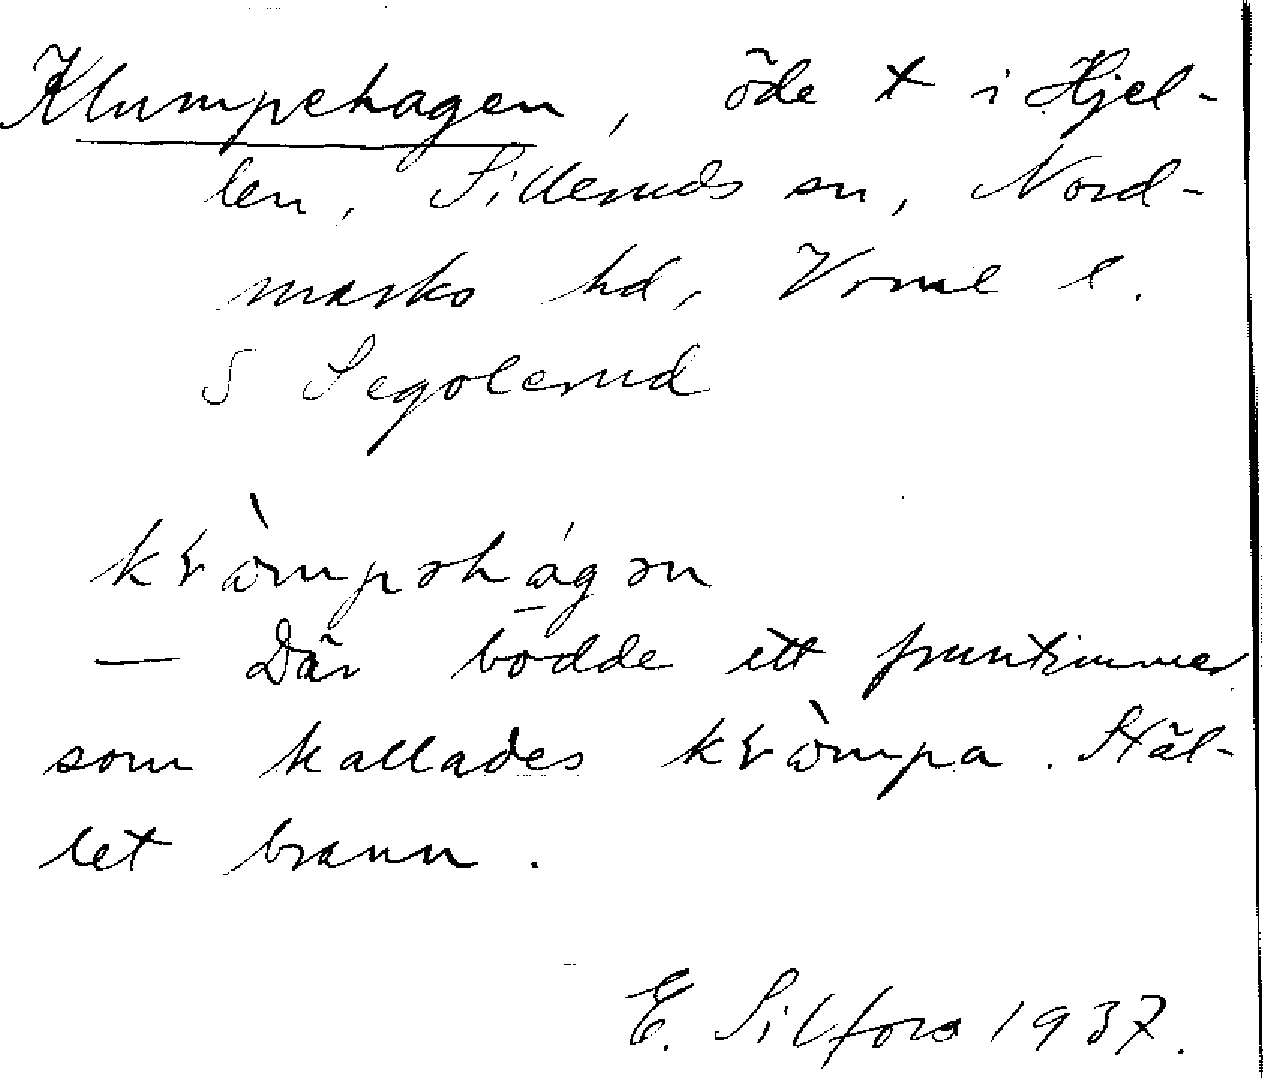 Klumpehagen, öde t i Hjel-
len, Silleruds sn, Nord-
marks hd, Vrml l.
S Segolerud
kɽòmpəhágən
— Där bodde ett fruntimmer
som kallades kɽòmpa. Stäl-
let brann.
E. Silfors 1937.